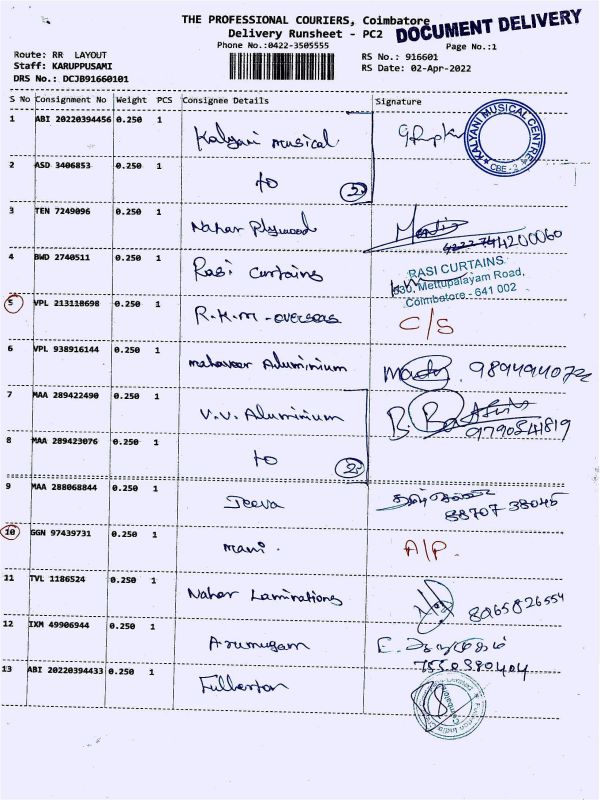 THE PROFESSIONAL COURIERS, Coimbatore
Delivery Runsheet - PC2
DOCUMENT DELIVERY
Phone No.:0422-3505555
Page No.:1
Route: RR LAYOUT
RS No.: 916601
Staff: KARUPPUSAMI
RS Date: 02-Apr-2022
DRS No.: DCJB91660101
S No Consignment No Weight PCS Consignee Details Signature
1 ABI 20220394456 0.250 1 Kalyani musical
KALYANI MUSICAL CENTRE
CBE - 2
2 ASD 3406853 0.250 1 to
3 TEN 7249096 0.250 1 Nahar Plywood
4 BWD 2740511 0.250 1 Rasi Curtains
RASI CURTAINS
530, Mettupalayam Road,
Coimbatore - 641 002
5 VPL 213110698 0.250 1 R.K.M - overseas C/S
6 VPL 938916144 0.250 1 mahaveer Aluminium
7 MAA 289422490 0.250 1 V.V. Aluminium
9790541819
8 MAA 289423076 0.250 1 to 2
9 MAA 288068844 0.250 1 Jeeva
88707 38045
10 GGN 97439731 0.250 1 mani. A/P.
11 TVL 1186524 0.250 1 Nahar Laminations
8065826554
12 IXM 49906944 0.250 1 Arumugam
13 ABI 20220394433 0.250 1 Fullerton